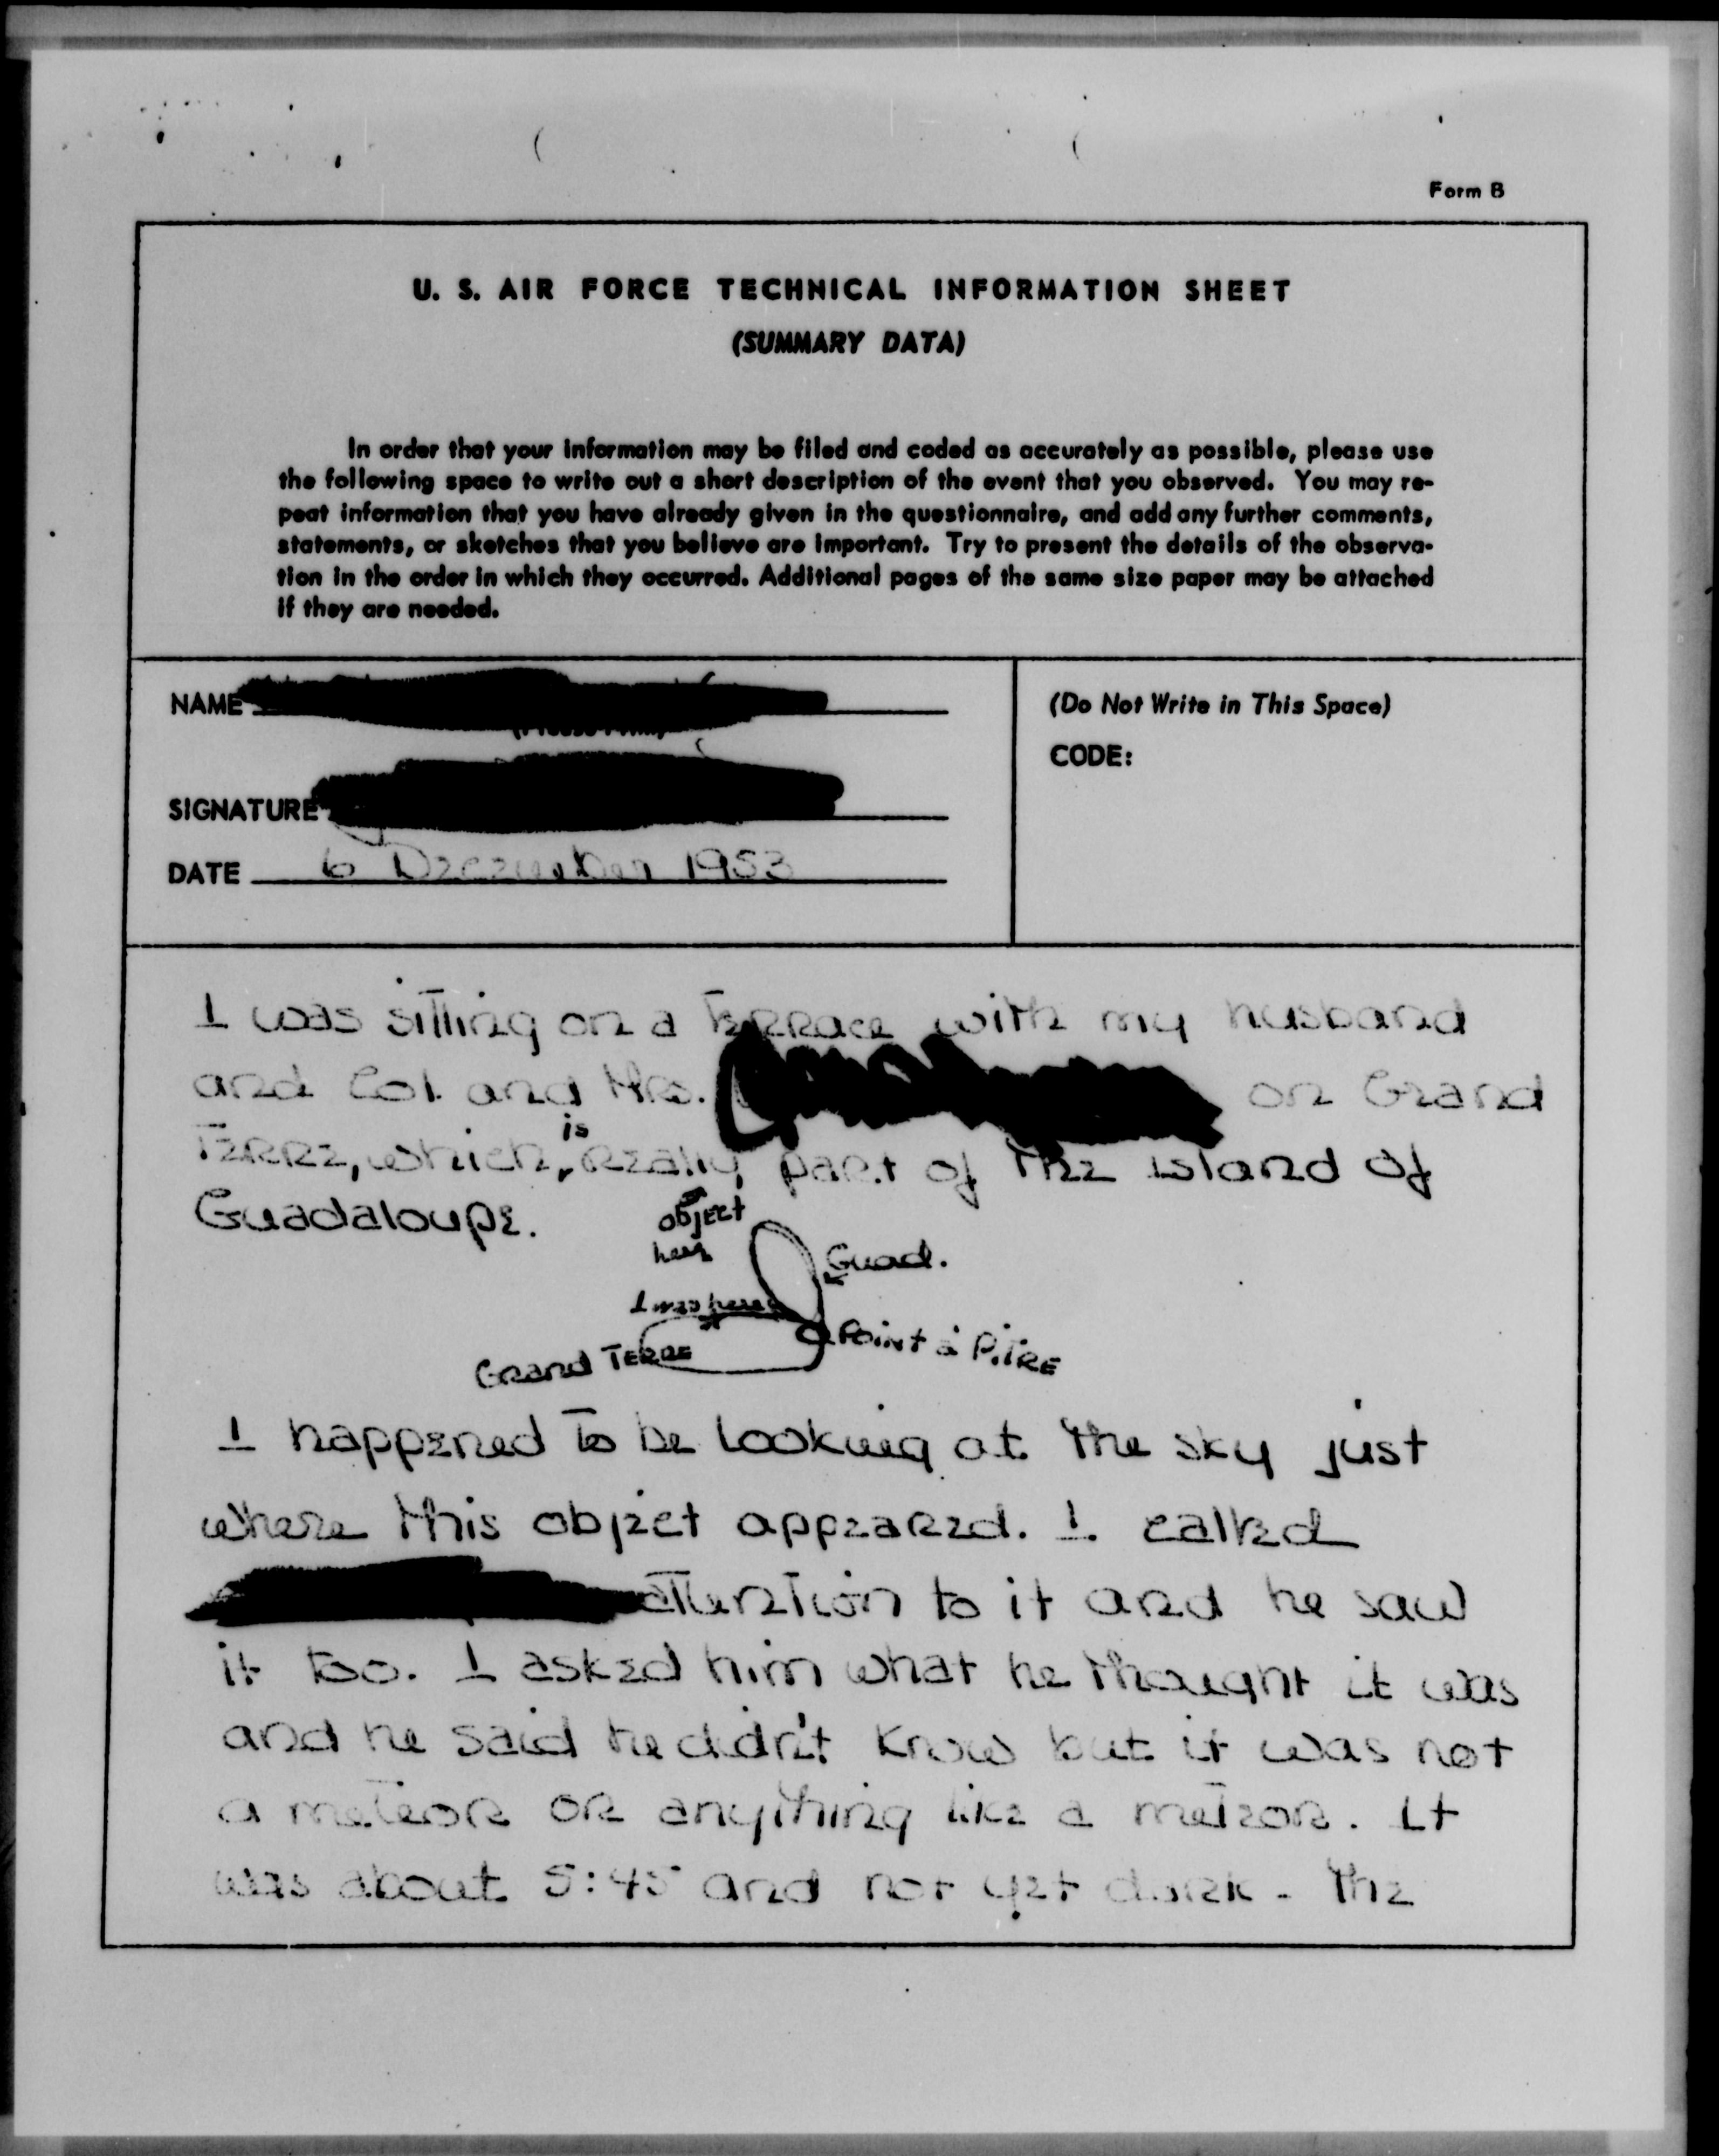 Form B
U. S. AIR FORCE TECHNICAL INFORMATION SHEET
(SUMMARY DATA)
In order that your information may be filed and coded as accurately as possible, please use
the following space to write out a short description of the event that you observed. You may re-
peat information that you have already given in the questionnaire, and add any further comments,
statements, or sketches that you believe are important. Try to present the details of the observa-
tion in the order in which they occurred. Additional pages of the same size paper may be attached
if they are needed.
NAME
(Do Not Write in This Space)
CODE:
SIGNATURE
DATE 6 December 1953
I was sitting on a terrace with my husband
and Col. and Mrs. on Grand
Terre, which is really part of the island of
Guadaloupe.
object
here
Guad.
I was here
Point à Pitre
Grand Terre
I happened to be looking at the sky just
where this object appeared. I called
attention to it and he saw
it too. I asked him what he thought it was
and he said he didn't know but it was not
a meteor or anything like a meteor. It
was about 5:45 and not yet dark - The